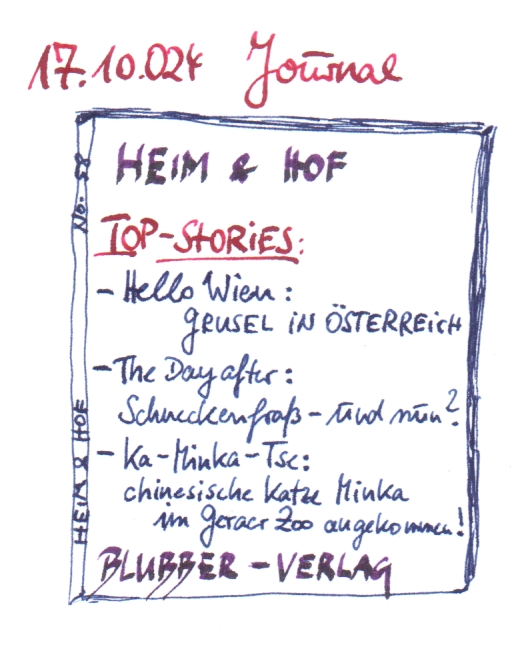 17.10.024 Journal
No. 58
HEIM & HOF
TOP-STORiES:
- Hello Wien:
GRUSEL iN ÖSTERREicH
- The Day after:
Schneckenfraß - und nun?
- Ka-Minka-Tse:
chinesische Katze Minka
im Geraer Zoo angekommen!
HEIM & HOF
BLUBBER-VERLAG